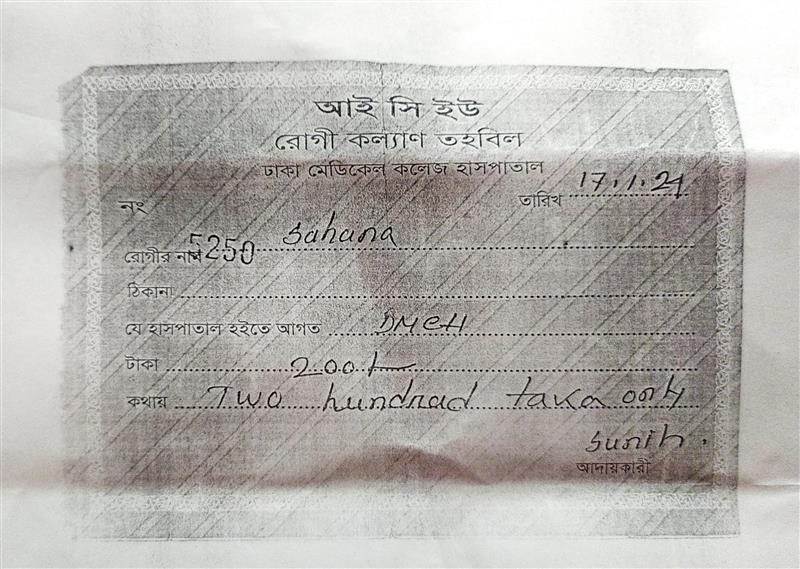 আই সি ইউ
রোগী কল্যাণ তহবিল
ঢাকা মেডিকেল কলেজ হাসপাতাল
নং
তারিখ 17.1.21
রোগীর নাম 5250 Sahana
ঠিকানা
যে হাসপাতাল হইতে আগত DMCH
টাকা 200/-
কথায় Two hundrad taka only
আদায়কারী